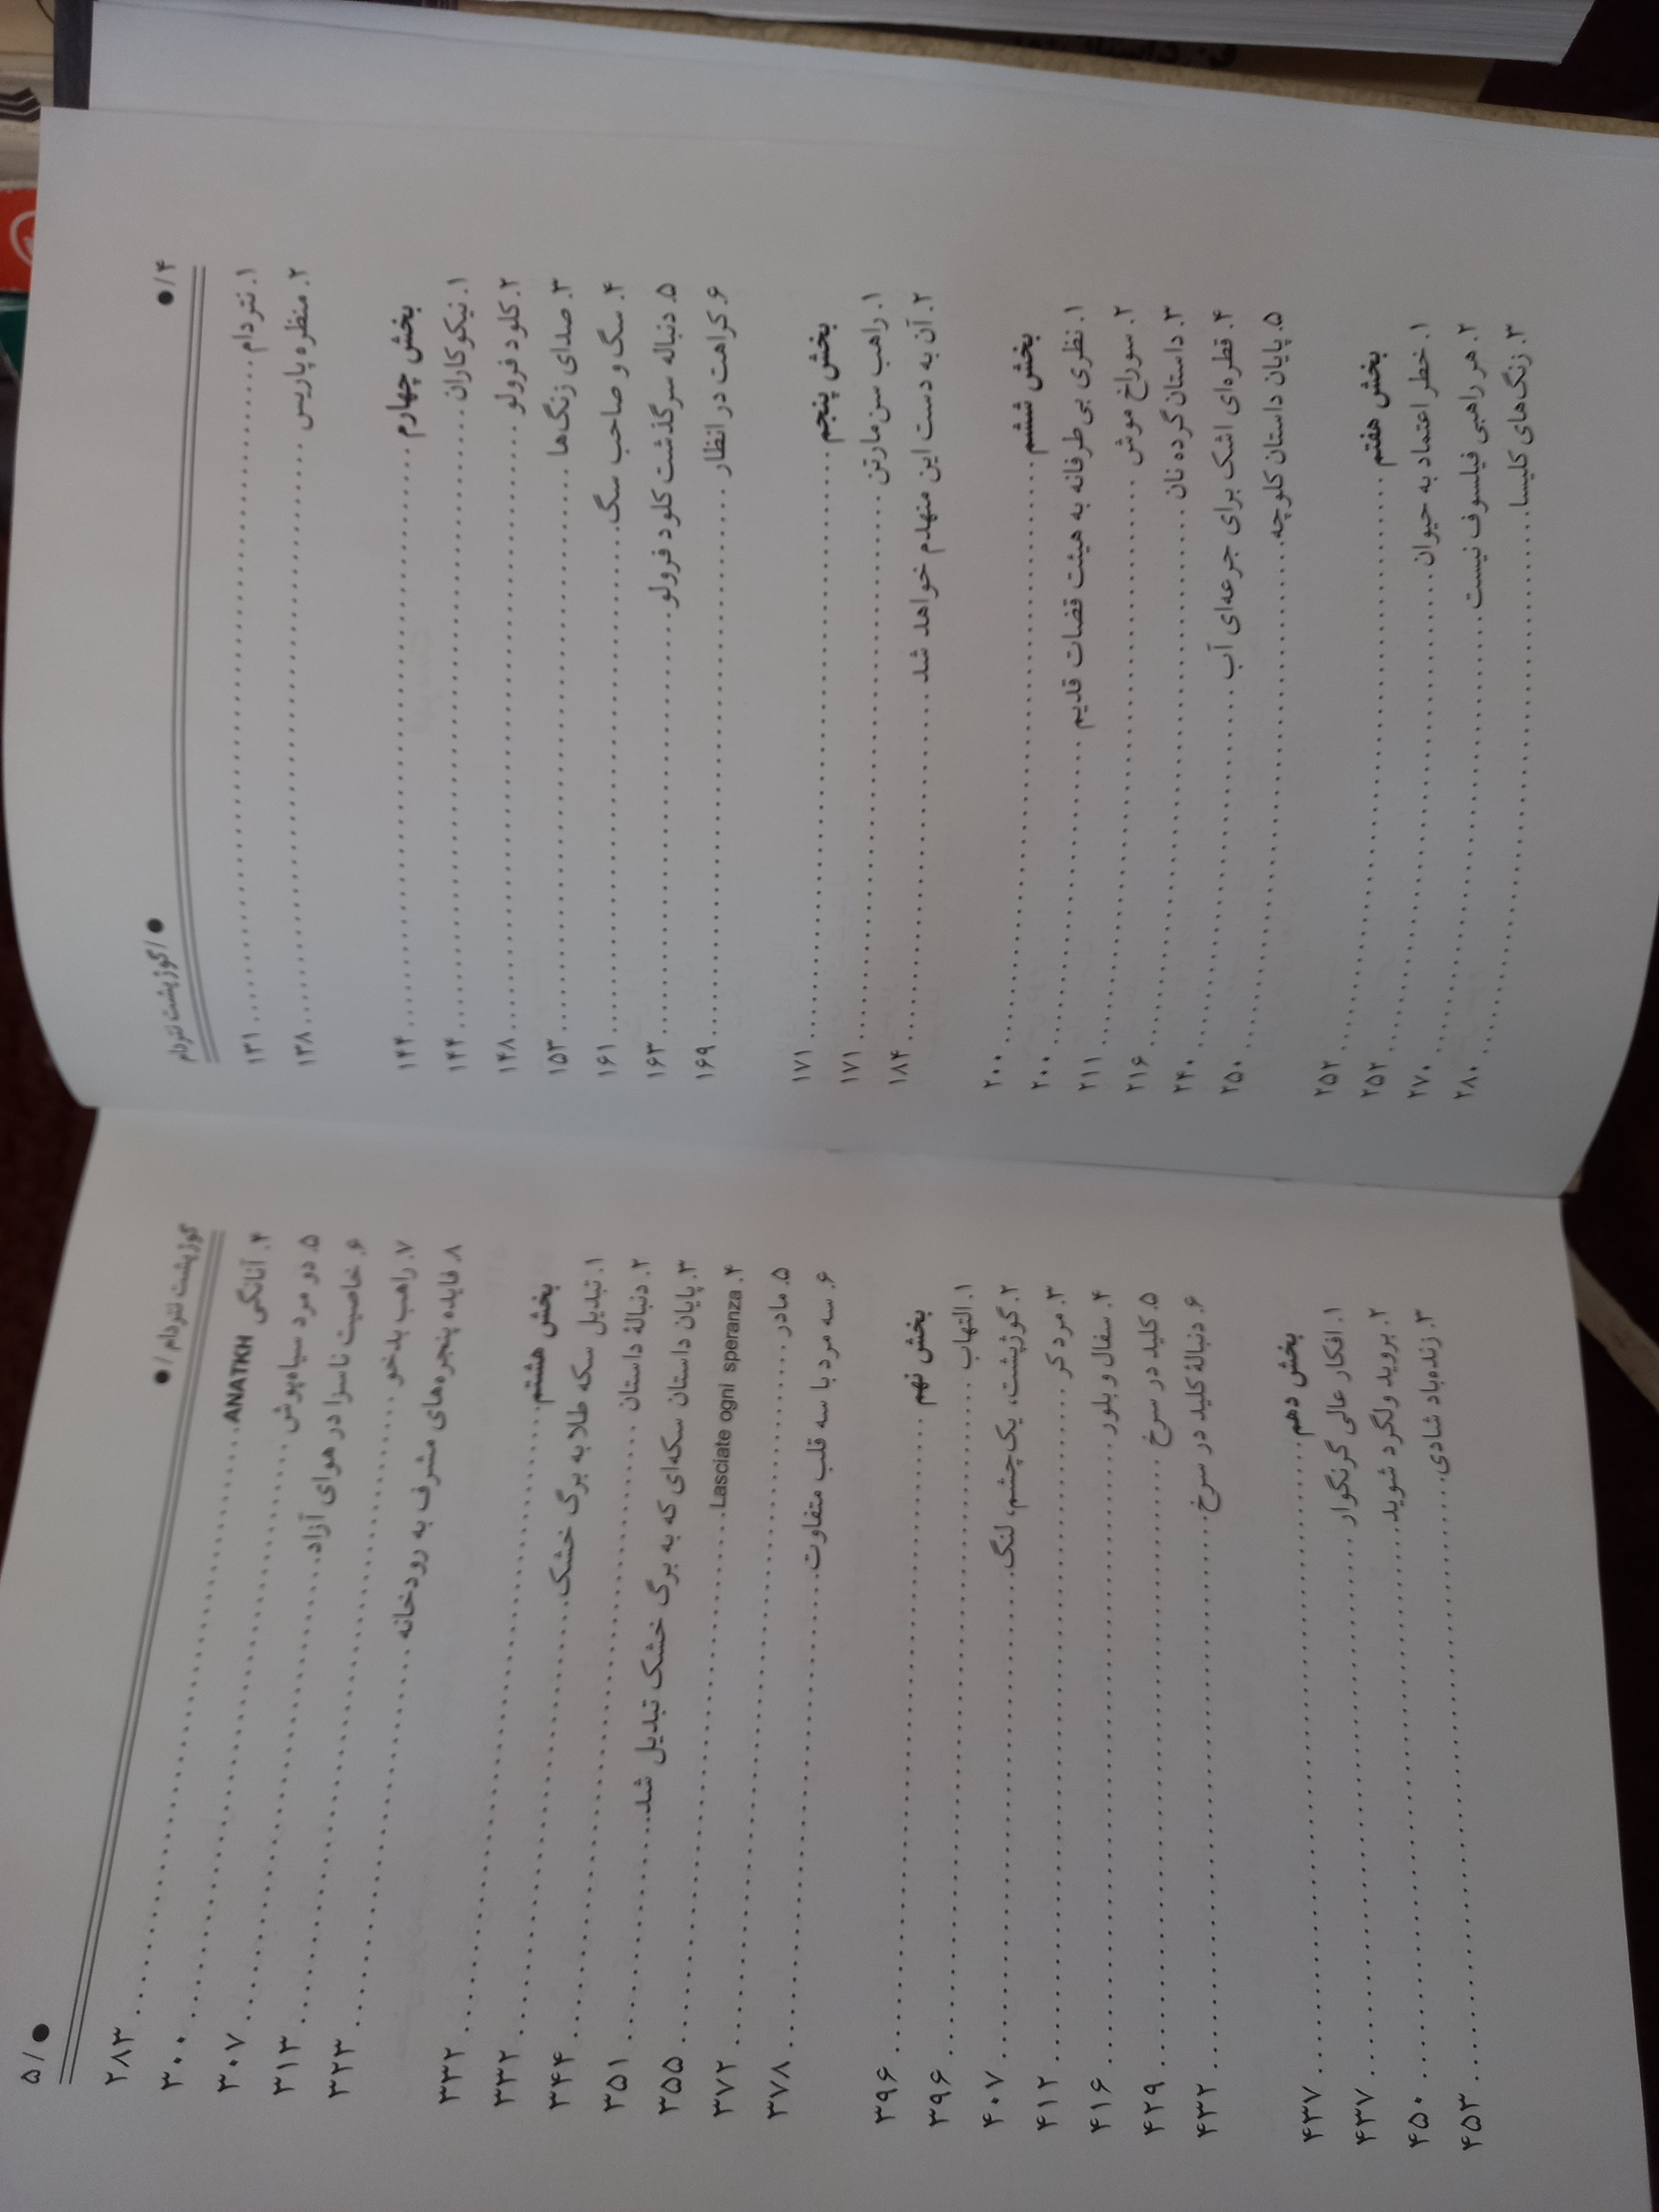 ۴/● ●/گوژپشت نتردام
۱. نتردام .......... ۱۳۱
۲. منظره پاریس .......... ۱۳۸
بخش چهارم .......... ۱۴۴
۱. نیکوکاران .......... ۱۴۴
۲. کلود فرولو .......... ۱۴۸
۳. صدای زنگ‌ها .......... ۱۵۳
۴. سگ و صاحب سگ .......... ۱۶۱
۵. دنباله سرگذشت کلود فرولو .......... ۱۶۳
۶. کراهت در انظار .......... ۱۶۹
بخش پنجم .......... ۱۷۱
۱. راهب سن‌مارتن .......... ۱۷۱
۲. آن به دست این منهدم خواهد شد .......... ۱۸۴
بخش ششم .......... ۲۰۰
۱. نظری بی‌طرفانه به هیئت قضات قدیم .......... ۲۰۰
۲. سوراخ موش .......... ۲۱۱
۳. داستان گرده نان .......... ۲۱۶
۴. قطره‌ای اشک برای جرعه‌ای آب .......... ۲۴۰
۵. پایان داستان کلوچه .......... ۲۵۰
بخش هفتم .......... ۲۵۲
۱. خطر اعتماد به حیوان .......... ۲۵۲
۲. هر راهبی فیلسوف نیست .......... ۲۷۰
۳. زنگ‌های کلیسا .......... ۲۸۰
گوژپشت نتردام/● ●/۵
۴. آنانکی ANATKH .......... ۲۸۳
۵. دو مرد سیاه‌پوش .......... ۳۰۰
۶. خاصیت ناسزا در هوای آزاد .......... ۳۰۷
۷. راهب بدخو .......... ۳۱۳
۸. فایده پنجره‌های مشرف به رودخانه .......... ۳۲۳
بخش هشتم .......... ۳۳۲
۱. تبدیل سکه طلا به برگ خشک .......... ۳۳۲
۲. دنبالهٔ داستان .......... ۳۴۴
۳. پایان داستان سکه‌ای که به برگ خشک تبدیل شد .......... ۳۵۱
۴. Lasciate ogni speranza .......... ۳۵۵
۵. مادر .......... ۳۷۲
۶. سه مرد با سه قلب متفاوت .......... ۳۷۸
بخش نهم .......... ۳۹۶
۱. التهاب .......... ۳۹۶
۲. گوژپشت، یک‌چشم، لنگ .......... ۴۰۷
۳. مرد کر .......... ۴۱۲
۴. سفال و بلور .......... ۴۱۶
۵. کلید در سرخ .......... ۴۲۹
۶. دنبالهٔ کلید در سرخ .......... ۴۳۲
بخش دهم .......... ۴۳۷
۱. افکار عالی گرنگوار .......... ۴۳۷
۲. بروید ولگرد شوید .......... ۴۵۰
۳. زنده‌باد شادی .......... ۴۵۳